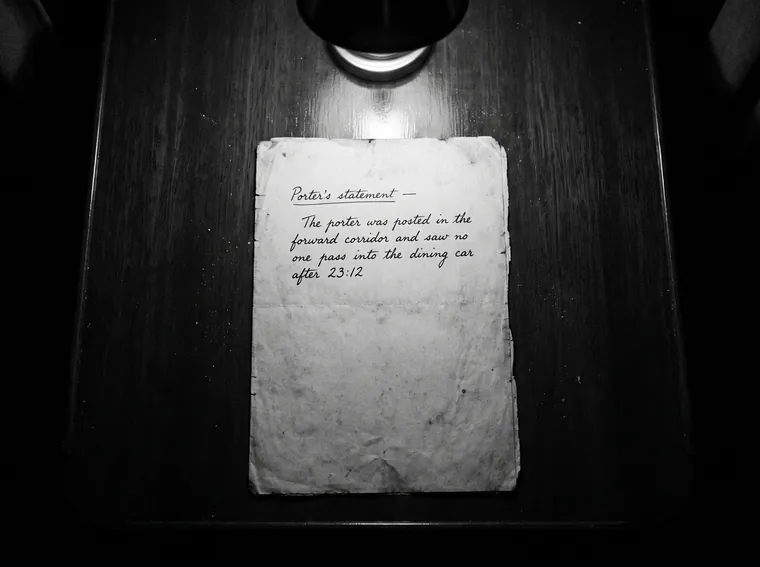 Porter's statement —
The porter was posted in the
forward corridor and saw no
one pass into the dining car
after 23:12